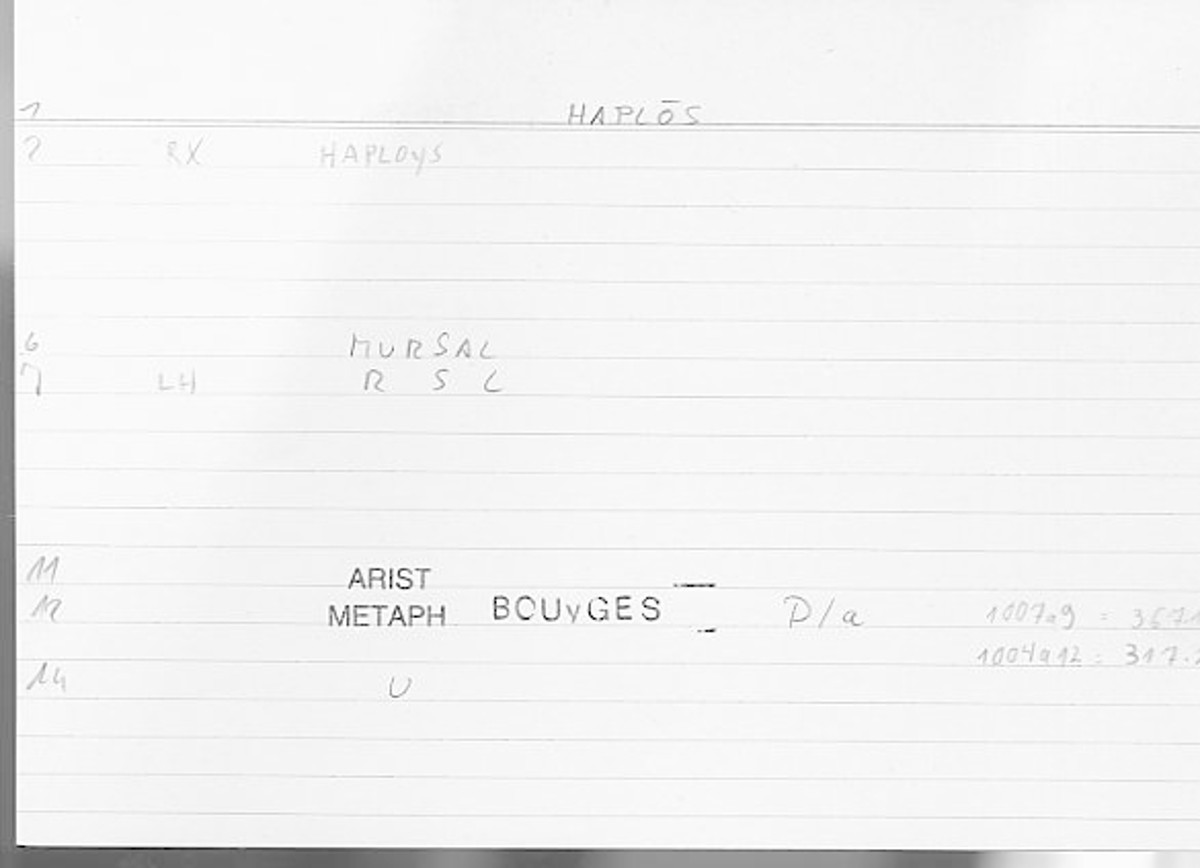 1 HAPLŌS
2 RX HAPLOyS
6 MURSAL
7 LH R S L
11 ARIST
12 METAPH BOUyGES D/a 1007a9 = 367.1
1004a12 = 317.2
14 U